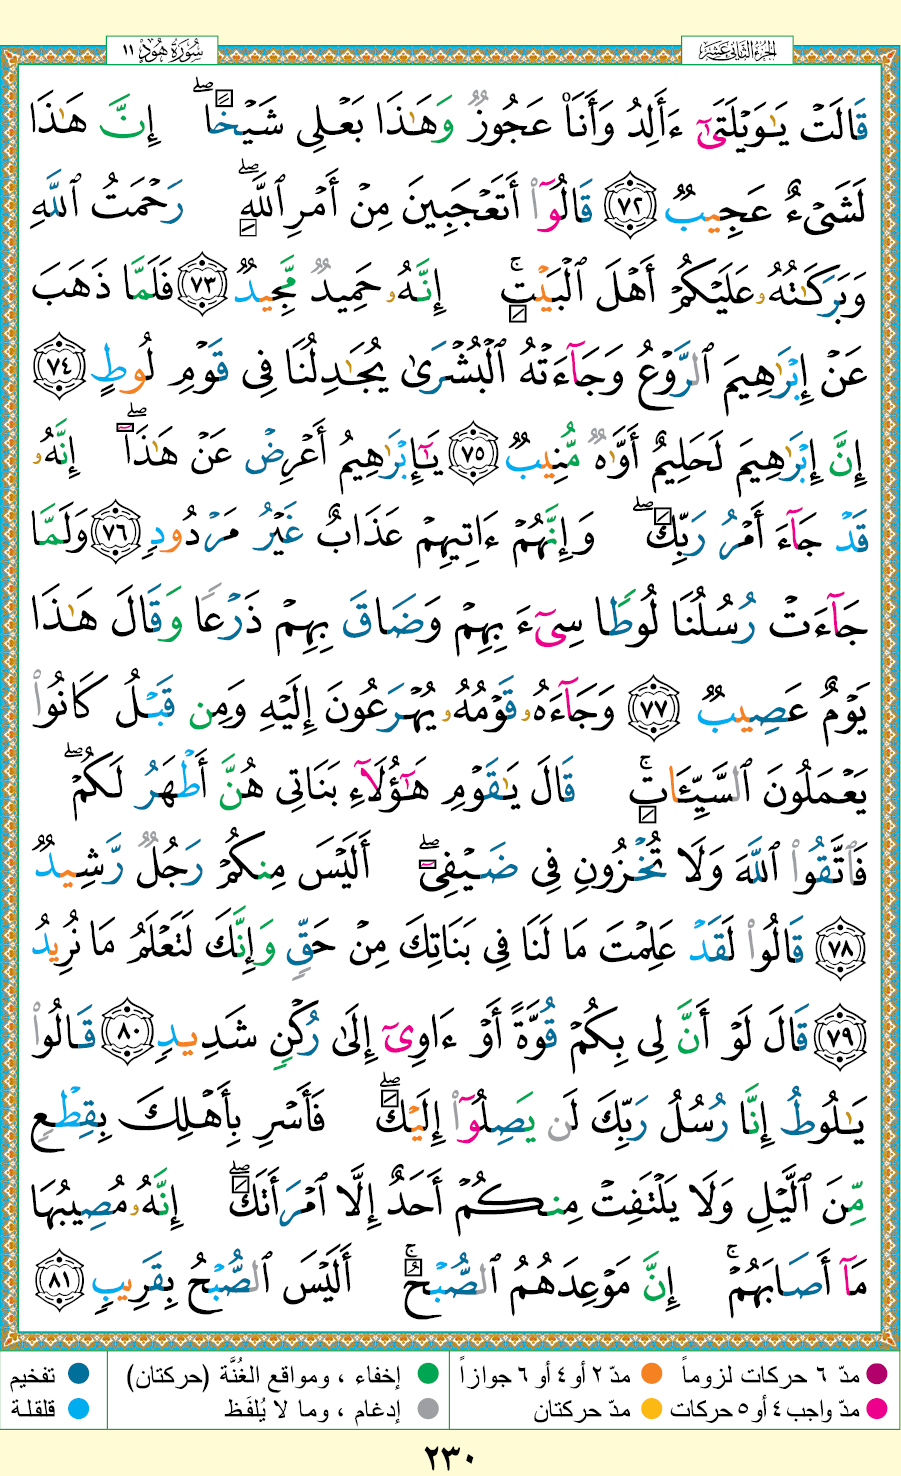 الجزء الثاني عشر
سُورَةُ هُودٍ ١١
قَالَتْ يَٰوَيْلَتَىٰٓ ءَأَلِدُ وَأَنَا۠ عَجُوزٌ وَهَٰذَا بَعْلِى شَيْخًا ۖ إِنَّ هَٰذَا
لَشَىْءٌ عَجِيبٌ ٧٢ قَالُوٓا۟ أَتَعْجَبِينَ مِنْ أَمْرِ ٱللَّهِ ۖ رَحْمَتُ ٱللَّهِ
وَبَرَكَٰتُهُۥ عَلَيْكُمْ أَهْلَ ٱلْبَيْتِ ۚ إِنَّهُۥ حَمِيدٌ مَّجِيدٌ ٧٣ فَلَمَّا ذَهَبَ
عَنْ إِبْرَٰهِيمَ ٱلرَّوْعُ وَجَآءَتْهُ ٱلْبُشْرَىٰ يُجَٰدِلُنَا فِى قَوْمِ لُوطٍ ٧٤
إِنَّ إِبْرَٰهِيمَ لَحَلِيمٌ أَوَّٰهٌ مُّنِيبٌ ٧٥ يَٰٓإِبْرَٰهِيمُ أَعْرِضْ عَنْ هَٰذَآ ۖ إِنَّهُۥ
قَدْ جَآءَ أَمْرُ رَبِّكَ ۖ وَإِنَّهُمْ ءَاتِيهِمْ عَذَابٌ غَيْرُ مَرْدُودٍ ٧٦ وَلَمَّا
جَآءَتْ رُسُلُنَا لُوطًا سِىٓءَ بِهِمْ وَضَاقَ بِهِمْ ذَرْعًا وَقَالَ هَٰذَا
يَوْمٌ عَصِيبٌ ٧٧ وَجَآءَهُۥ قَوْمُهُۥ يُهْرَعُونَ إِلَيْهِ وَمِن قَبْلُ كَانُوا۟
يَعْمَلُونَ ٱلسَّيِّـَٔاتِ ۚ قَالَ يَٰقَوْمِ هَٰٓؤُلَآءِ بَنَاتِى هُنَّ أَطْهَرُ لَكُمْ ۖ
فَٱتَّقُوا۟ ٱللَّهَ وَلَا تُخْزُونِ فِى ضَيْفِىٓ ۖ أَلَيْسَ مِنكُمْ رَجُلٌ رَّشِيدٌ
٧٨ قَالُوا۟ لَقَدْ عَلِمْتَ مَا لَنَا فِى بَنَاتِكَ مِنْ حَقٍّ وَإِنَّكَ لَتَعْلَمُ مَا نُرِيدُ
٧٩ قَالَ لَوْ أَنَّ لِى بِكُمْ قُوَّةً أَوْ ءَاوِىٓ إِلَىٰ رُكْنٍ شَدِيدٍ ٨٠ قَالُوا۟
يَٰلُوطُ إِنَّا رُسُلُ رَبِّكَ لَن يَصِلُوٓا۟ إِلَيْكَ ۖ فَأَسْرِ بِأَهْلِكَ بِقِطْعٍ
مِّنَ ٱلَّيْلِ وَلَا يَلْتَفِتْ مِنكُمْ أَحَدٌ إِلَّا ٱمْرَأَتَكَ ۖ إِنَّهُۥ مُصِيبُهَا
مَآ أَصَابَهُمْ ۚ إِنَّ مَوْعِدَهُمُ ٱلصُّبْحُ ۚ أَلَيْسَ ٱلصُّبْحُ بِقَرِيبٍ ٨١
مدّ ٦ حركات لزوماً مدّ ٢ أو ٤ أو ٦ جوازاً إخفاء ، ومواقع الغُنَّة (حركتان) تفخيم
مدّ واجب ٤ أو ٥ حركات مدّ حركتان إدغام ، وما لا يُلفَظ قلقلة
٢٣٠